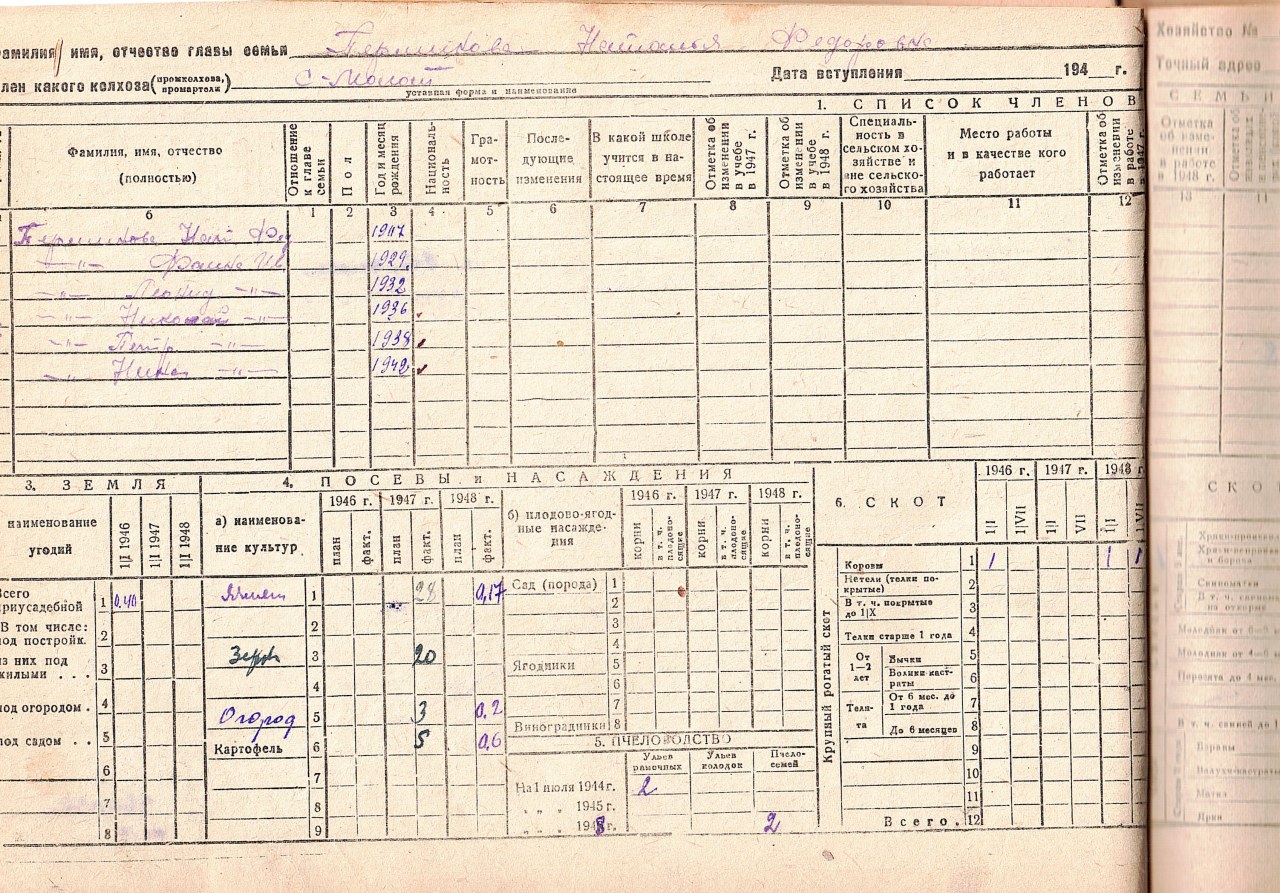 Фамилия, имя, отчество главы семьи Першикова Наталья Федоровна
член какого колхоза (промколхоза, промартели) с-Молот
уставная форма и наименование
Дата вступления 194 г.
1. СПИСОК ЧЛЕНОВ
Фамилия, имя, отчество (полностью)
Отношение к главе семьи
Пол
Год и месяц рождения
Национальность
Грамотность
Последующие изменения
В какой школе учится в настоящее время
Отметка об изменении в учебе в 1947 г.
Отметка об изменении в учебе в 1948 г.
Специальность в сельском хозяйстве и вне сельского хозяйства
Место работы и в качестве кого работает
Отметка об изменении в работе в 1947 г.
б 1 2 3 4 5 6 7 8 9 10 11 12
Першикова Нат Фед 1907
—"— Фаина Ив 1929
—"— Леонид —"— 1932
—"— Николай —"— 1936
—"— Петр —"— 1938
—"— Нина —"— 1942
3. ЗЕМЛЯ
наименование угодий
1|I 1946 1|I 1947 1|I 1948
Всего приусадебной 1 0.40
В том числе:
под постройк. 2
из них под жилыми . . . 3
под огородом . 4
под садом . . 5
6
7
8
4. ПОСЕВЫ и НАСАЖДЕНИЯ
а) наименование культур
1946 г. 1947 г. 1948 г.
план факт. план факт. план факт.
Ячмень 1 28 0,17
2
Зерн 3 20
4
Огород 5 3 0,2
Картофель 6 5 0,6
7
8
9
б) плодово-ягодные насаждения
1946 г. 1947 г. 1948 г.
корни в т. ч. плодоносящие корни в т. ч. плодоносящие корни в т. ч. плодоносящие
Сад (порода) 1
2
3
4
Ягодники 5
6
7
Виноградники 8
5. ПЧЕЛОВОДСТВО
Ульев рамочных Ульев колодок Пчелосемей
На 1 июля 1944 г. 2
„ „ „ 1945 г.
„ „ „ 1948 г. 2
6. СКОТ
1946 г. 1947 г. 1948 г.
1|I 1|VII 1|I VII 1|I 1|VII
Крупный рогатый скот
Коровы 1 1 1 1
Нетели (телки покрытые) 2
В т. ч. покрытые до 1|X 3
Телки старше 1 года 4
От 1—2 лет
Бычки 5
Волики-кастраты 6
Телята
От 6 мес. до 1 года 7
До 6 месяцев 8
9
10
11
Всего. 12
Хозяйство №
Точный адрес
СЕМЬИ
Отметка об изменении в работе в 1948 г.
13
СКО